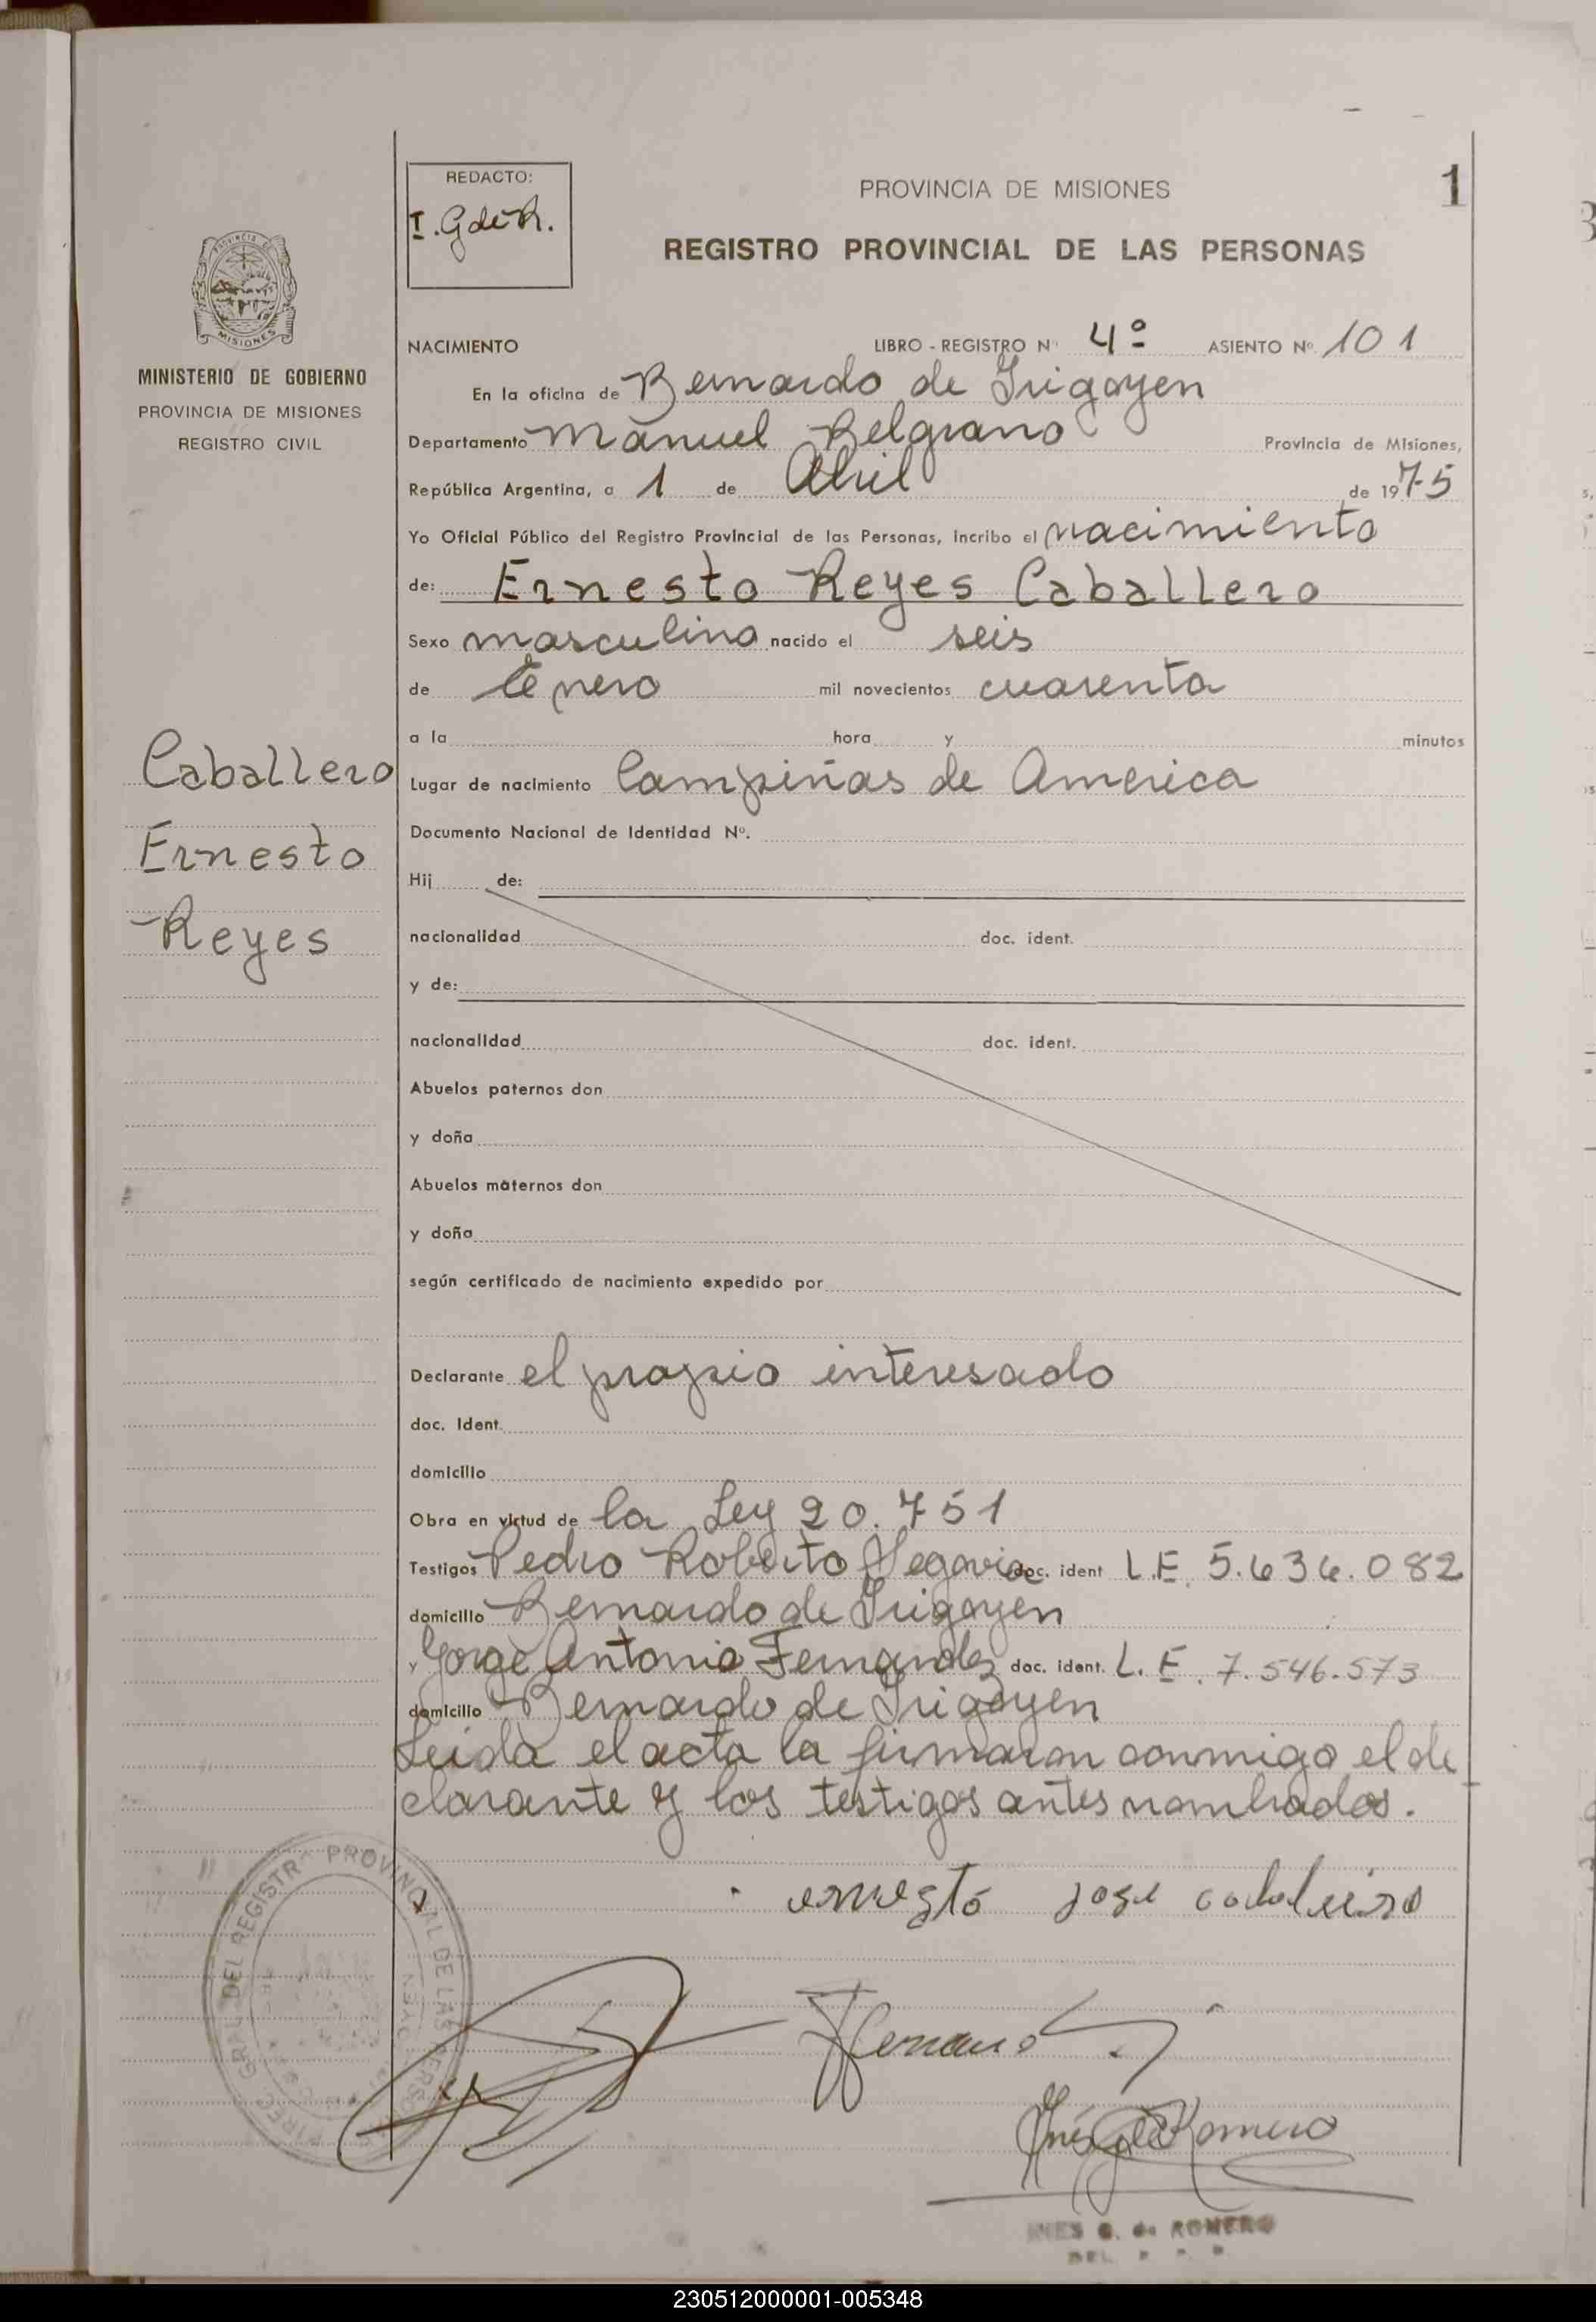 REDACTO:
I. G de R.
PROVINCIA DE MISIONES
1
REGISTRO PROVINCIAL DE LAS PERSONAS
MISIONES
MINISTERIO DE GOBIERNO
PROVINCIA DE MISIONES
REGISTRO CIVIL
NACIMIENTO LIBRO - REGISTRO Nº 4º ASIENTO Nº 101
En la oficina de Bernardo de Irigoyen
Departamento Manuel Belgrano Provincia de Misiones,
República Argentina, a 1 de Abril de 1975
Yo Oficial Público del Registro Provincial de las Personas, incribo el nacimiento
de: Ernesto Reyes Caballero
Sexo masculino nacido el seis
de Enero mil novecientos cuarenta
a la hora y minutos
Caballero
Ernesto
Reyes
Lugar de nacimiento Campiñas de America
Documento Nacional de Identidad Nº.
Hij de:
nacionalidad doc. ident.
y de:
nacionalidad doc. ident.
Abuelos paternos don
y doña
Abuelos maternos don
y doña
según certificado de nacimiento expedido por
Declarante el propio interesado
doc. Ident.
domicilio
Obra en virtud de la Ley 20.751
Testigos Pedro Roberto Segovia doc. ident L.E. 5.636.082
domicilio Bernardo de Irigoyen
y Jorge Antonio Fernandez doc. ident. L.E. 7.546.573
domicilio Bernardo de Irigoyen
Leida el acta la firmaron conmigo el de
clarante y los testigos antes nombrados.
ernesto jose cabaleiro
DIREC. GRAL. DEL REGISTRO PROVINCIAL DE LAS PERSONAS
Inés G de Romero
INES G. de ROMERO
230512000001-005348